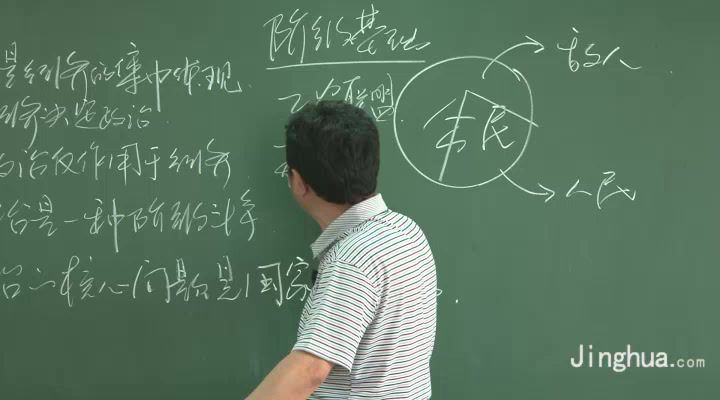 是经济的集中体现.
经济决定政治.
政治反作用于经济
治是一种阶级的斗争
治的核心问题是国家
阶级基础
工农联盟
公民
敌人
人民
Jinghua.com